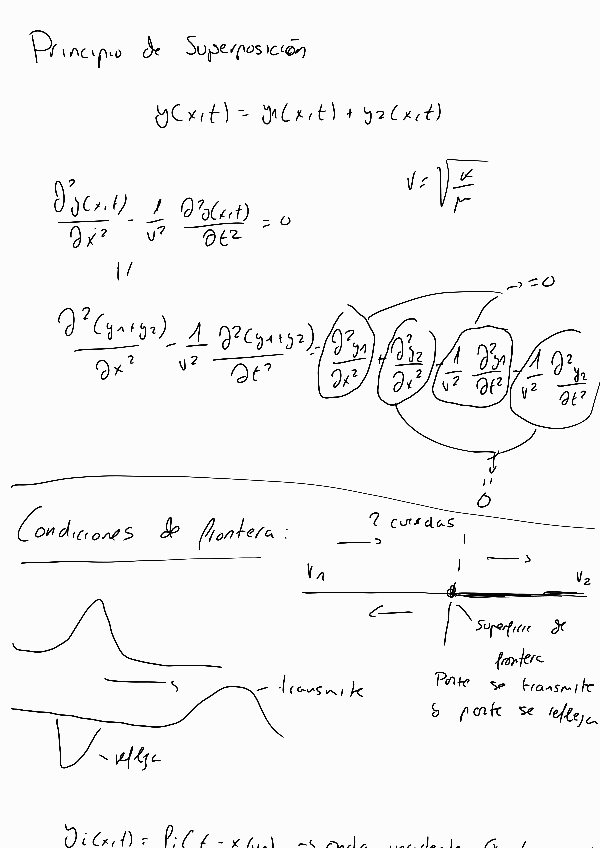 Principio de Superposición
y(x,t) = y1(x,t) + y2(x,t)
∂²y(x,t)/∂x² - 1/v² ∂²y(x,t)/∂t² = 0
v = √
∂²(y1+y2)/∂x² - 1/v² ∂²(y1+y2)/∂t² = ∂²y1/∂x² + ∂²y2/∂x² - 1/v² ∂²y1/∂t² - 1/v² ∂²y2/∂t²
→ = 0
0
Condiciones de frontera:
2 cuerdas
v1
v2
Superficie de
frontera
Parte se transmite
& parte se refleja
transmite
refleja
yi(x,t) =